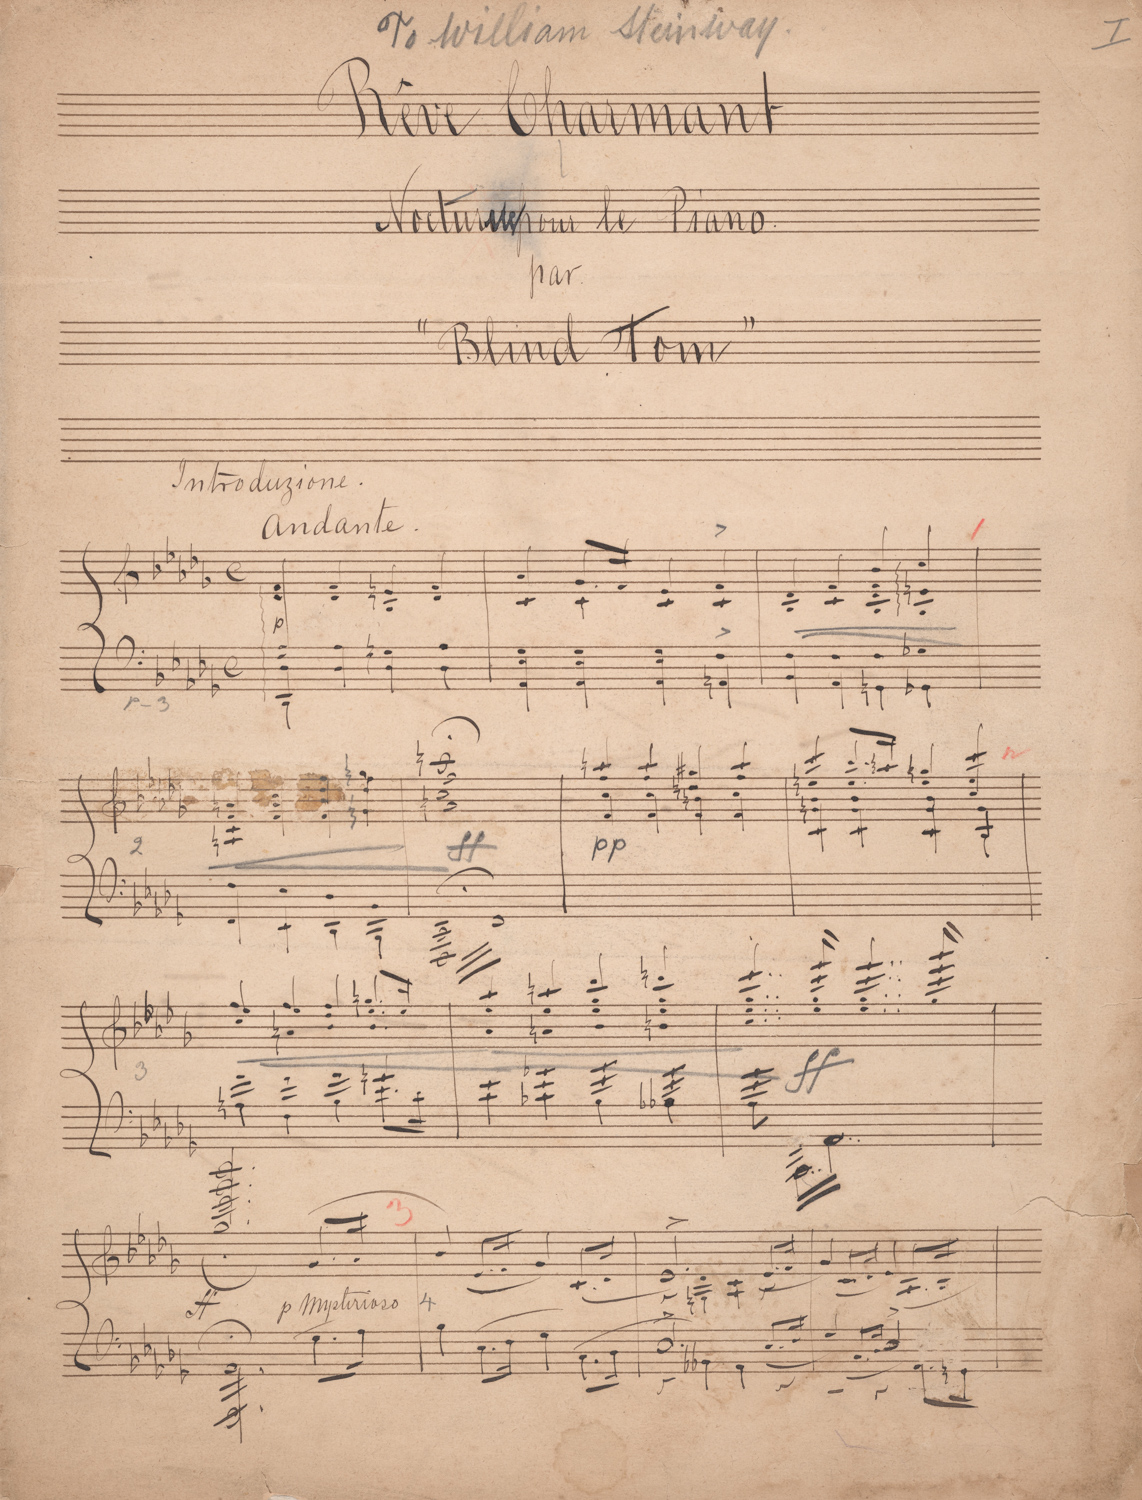 To William Steinway.
I
Rêve Charmant
Nocturne pour le Piano.
par
"Blind Tom"
Introduzione.
Andante.
1
p
p-3
2
ff
pp
3
ff
3
ff
p Mysterioso 4